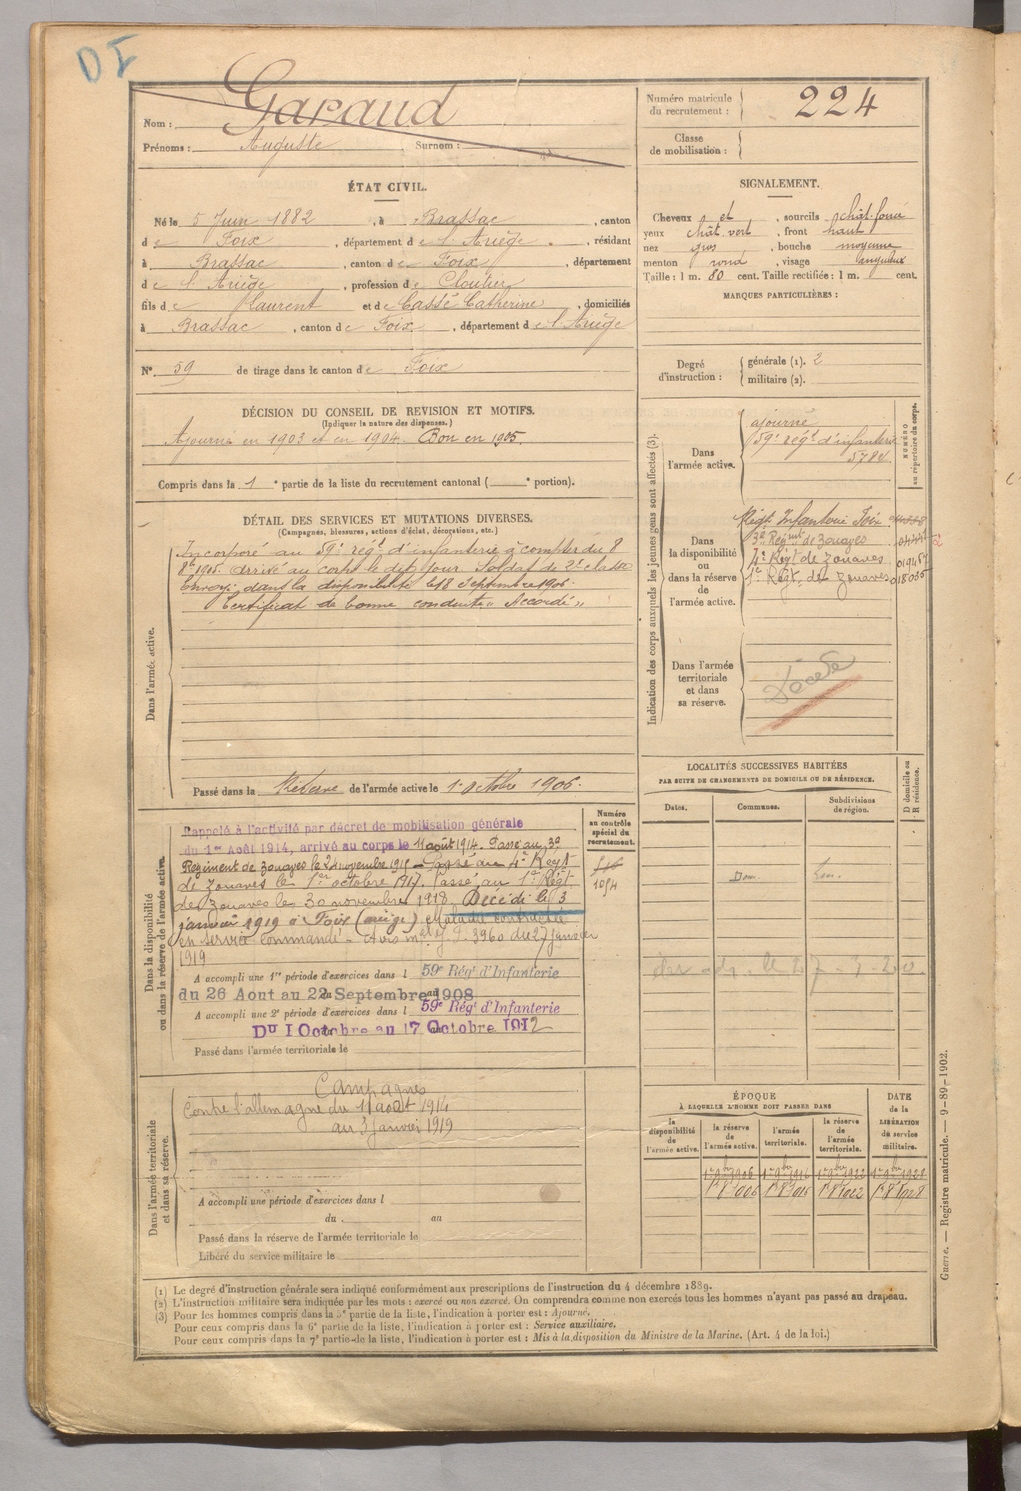 DI
Nom : Garaud
Prénoms : Auguste Surnom :
Numéro matricule du recrutement : 224
Classe de mobilisation :
ÉTAT CIVIL.
Né le 5 Juin 1882, à Brassac, canton
de Foix, département de l'Ariège, résidant
à Brassac, canton de Foix, département
de l'Ariège, profession de Cloutier
fils de Laurent et de Cassé Catherine, domiciliés
à Brassac, canton de Foix, département de l'Ariège
N° 59 de tirage dans le canton de Foix
SIGNALEMENT.
Cheveux et, sourcils chât. foncé
yeux chât. vert, front haut
nez gros, bouche moyenne
menton rond, visage anguleux
Taille : 1 m. 80 cent. Taille rectifiée : 1 m. cent.
MARQUES PARTICULIÈRES :
Degré d'instruction : générale (1). 2
militaire (2).
DÉCISION DU CONSEIL DE REVISION ET MOTIFS.
(Indiquer la nature des dispenses.)
Ajourné en 1903 et en 1904. Bon en 1905.
Compris dans la 1e partie de la liste du recrutement cantonal ( e portion).
DÉTAIL DES SERVICES ET MUTATIONS DIVERSES.
(Campagnes, blessures, actions d'éclat, décorations, etc.)
Dans l'armée active.
Incorporé au 59e régt d'infanterie à compter du 8
8bre 1905. Arrivé au corps le dit jour Soldat de 2e classe
Envoyé dans la disponibilité le 18 Septembre 1906.
Certificat de bonne conduite "Accordé"
Passé dans la Réserve de l'armée active le 1er Octobre 1906.
Indication des corps auxquels les jeunes gens sont affectés (3).
NUMÉRO au répertoire du corps.
Dans l'armée active.
ajourné
59e régt d'infanterie
5784
Dans la disponibilité ou dans la réserve de l'armée active.
Régt Infanterie Foix
3e Régiment de Zouaves
4e Régt de Zouaves
1e Régt de Zouaves 018035
Dans l'armée territoriale et dans sa réserve.
Décédé
LOCALITÉS SUCCESSIVES HABITÉES
PAR SUITE DE CHANGEMENTS DE DOMICILE OU DE RÉSIDENCE.
Dates.
Communes.
Subdivisions de région.
D domicile ou R résidence.
Dans la disponibilité ou dans la réserve de l'armée active.
Numéro au contrôle spécial du recrutement.
1094
Rappelé à l'activité par décret de mobilisation générale
du 1er Août 1914, arrivé au corps le 11 août 1914. Passé au 3e
Régiment de Zouaves le 24 novembre 1915 - Passé au 4e Régt
de Zouaves le 1er octobre 1917. Passé au 1e Régt
de Zouaves le 30 novembre 1918. Décédé le 3
janvier 1919 à Foix (ariège) Maladie contractée
en service commandé - Avis 3960 du 27 janvier
1919
A accompli une 1re période d'exercices dans l 59e Régt d'Infanterie
du 26 Aout au 22 Septembre 1908
A accompli une 2e période d'exercices dans l 59e Régt d'Infanterie
Du 1 Octobre au 17 Octobre 1912
Passé dans l'armée territoriale le
Dans l'armée territoriale et dans sa réserve.
Campagnes
Contre l'allemagne du 11 août 1914
au 3 janvier 1919
A accompli une période d'exercices dans l
du au
Passé dans la réserve de l'armée territoriale le
Libéré du service militaire le
ÉPOQUE
À LAQUELLE L'HOMME DOIT PASSER DANS
la disponibilité de l'armée active.
la réserve de l'armée active.
l'armée territoriale.
la réserve de l'armée territoriale.
DATE de la LIBÉRATION du service militaire.
(1) Le degré d'instruction générale sera indiqué conformément aux prescriptions de l'instruction du 4 décembre 1889.
(2) L'instruction militaire sera indiquée par les mots : exercé ou non exercé. On comprendra comme non exercés tous les hommes n'ayant pas passé au drapeau.
(3) Pour les hommes compris dans la 5e partie de la liste, l'indication à porter est : Ajourné.
Pour ceux compris dans la 6e partie de la liste, l'indication à porter est : Service auxiliaire.
Pour ceux compris dans la 7e partie de la liste, l'indication à porter est : Mis à la disposition du Ministre de la Marine. (Art. 4 de la loi.)
Guerre. — Registre matricule. — 9-89-1902.